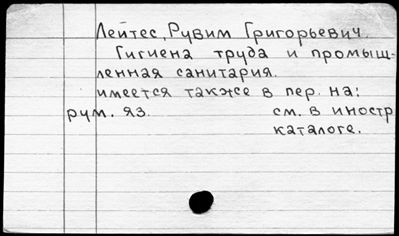 Лейтес, Рувим Григорьевич.
Гигиена труда и промыш-
ленная санитария.
имеется также в пер. на:
рум. яз. см. в иностр
каталоге.